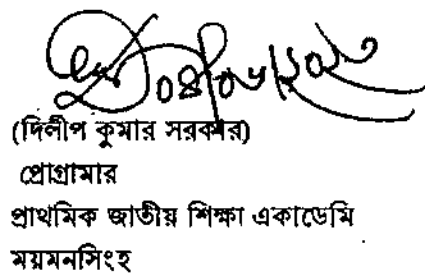 (দিলীপ কুমার সরকার)
প্রোগ্রামার
প্রাথমিক জাতীয় শিক্ষা একাডেমি
ময়মনসিংহ